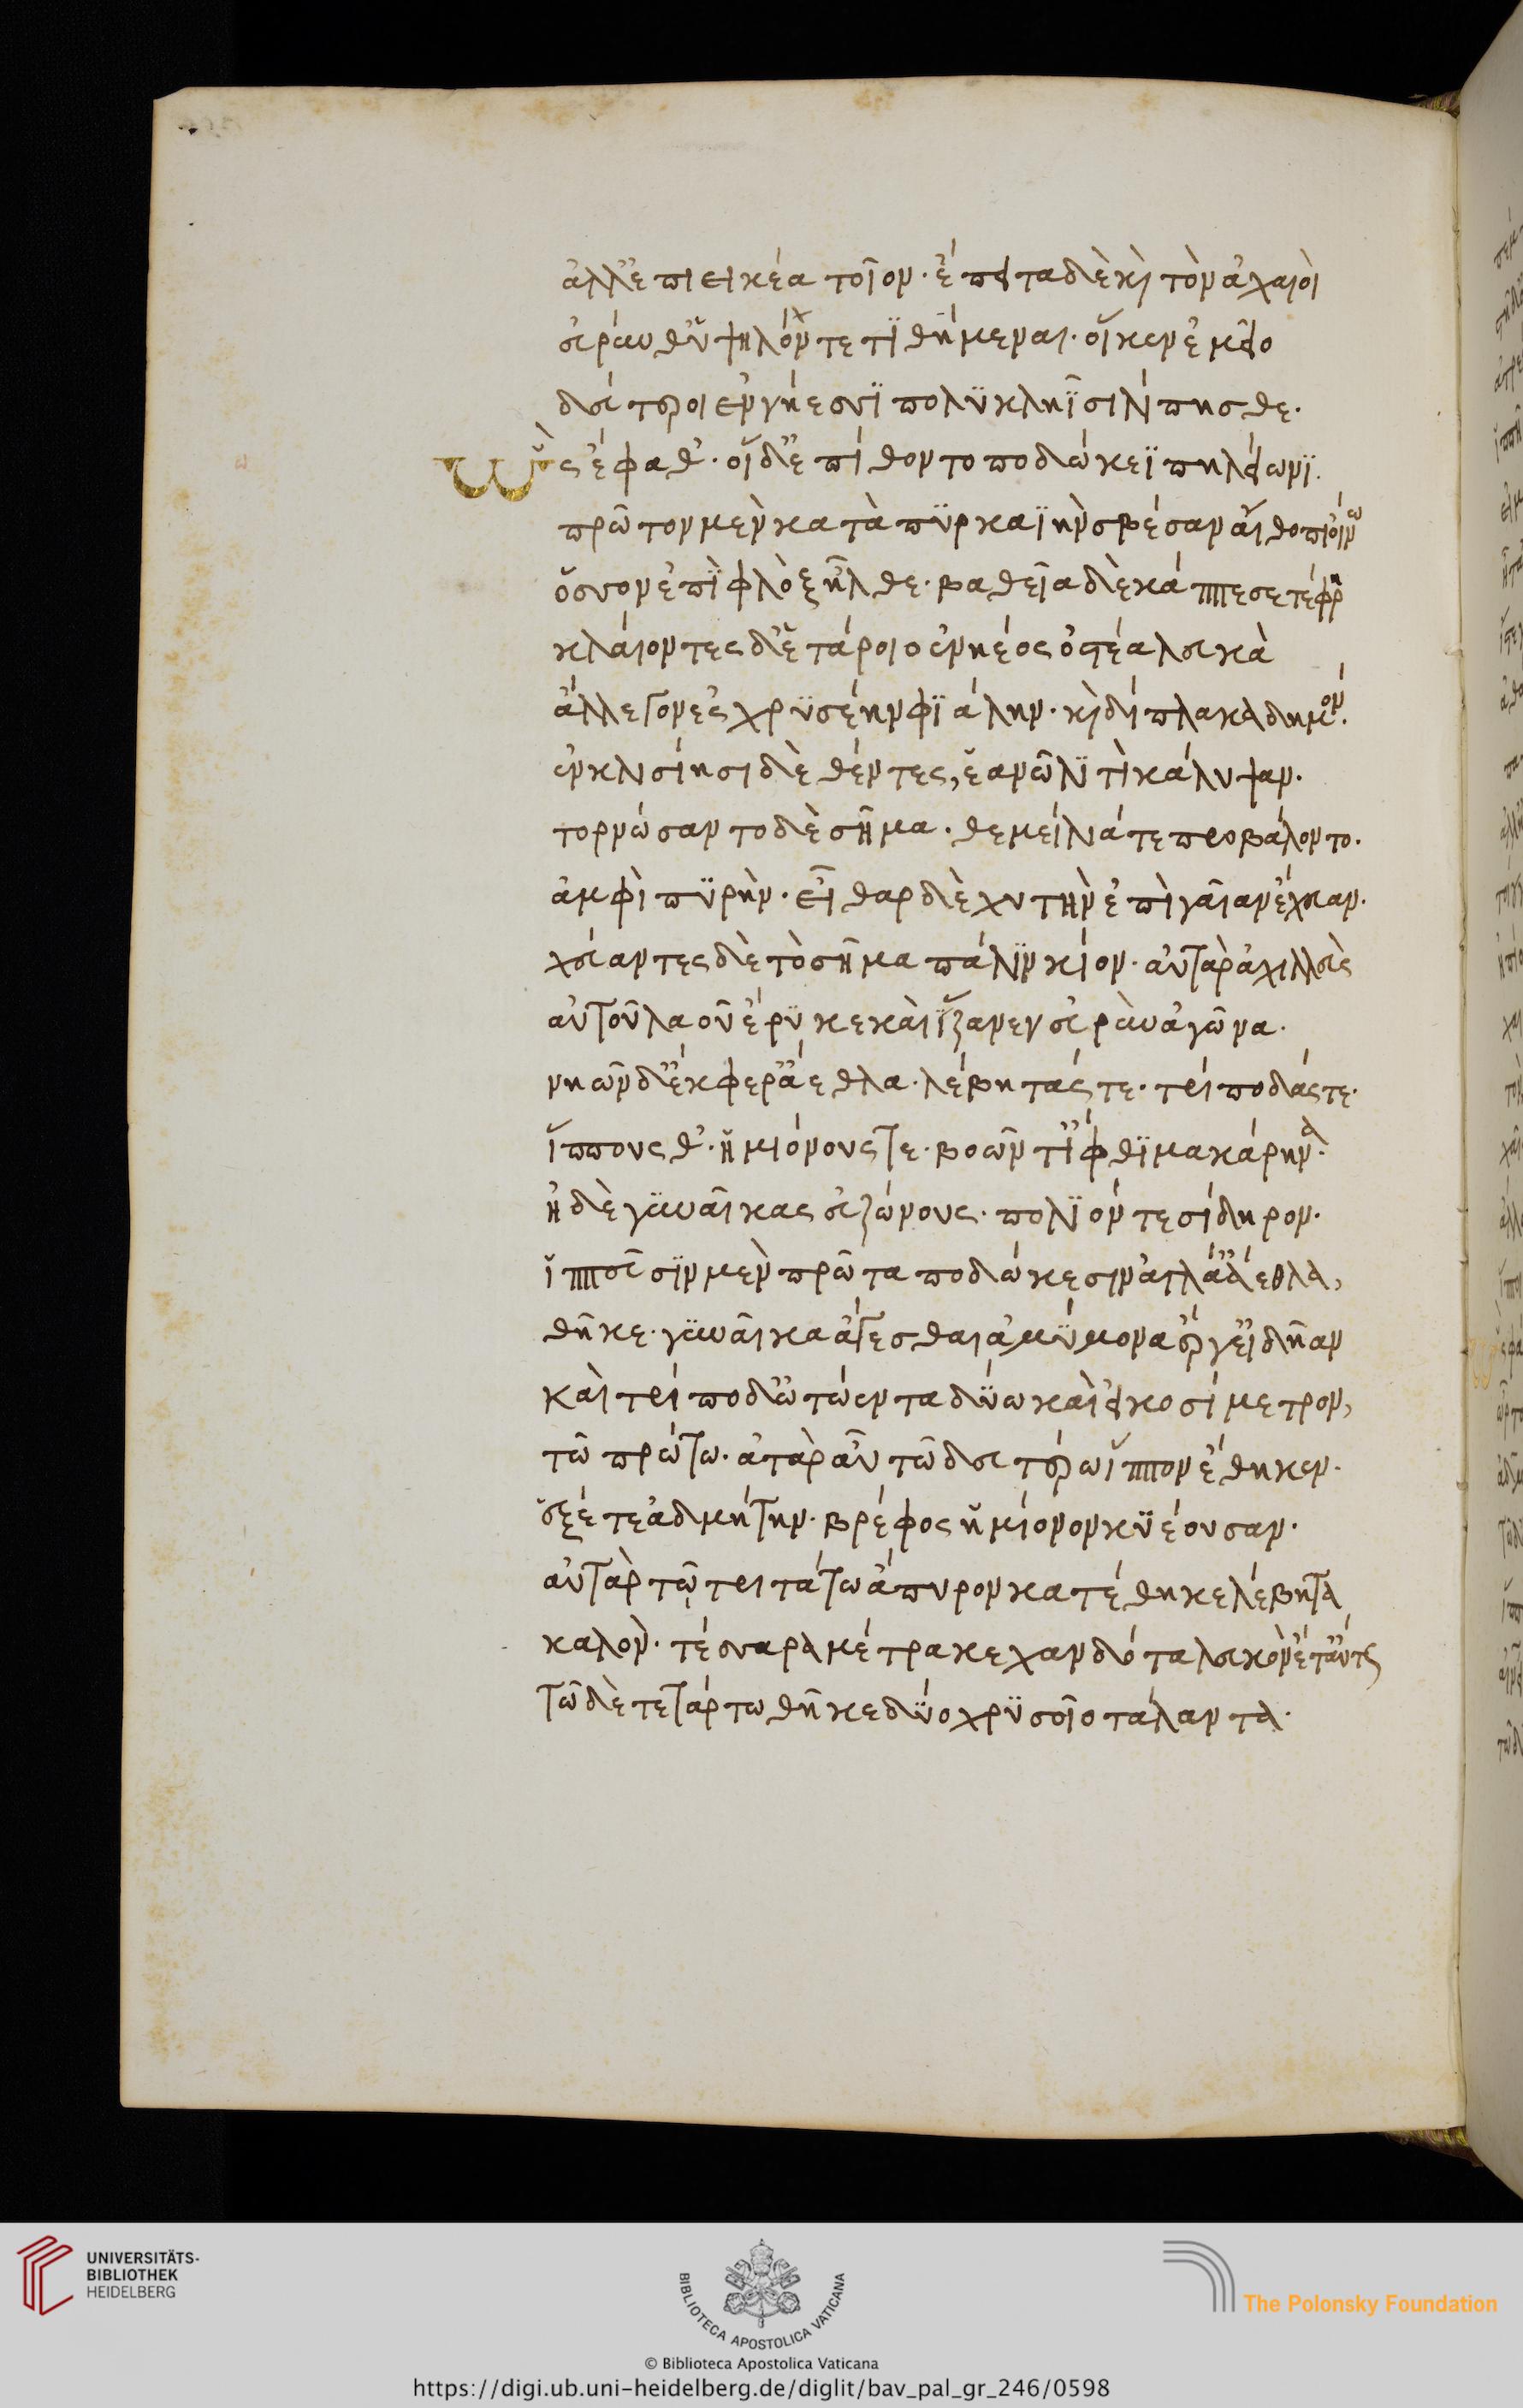 ἀλλ' ἐπιεικέα τοῖον· ἔπειτα δὲ καὶ τὸν ἀχαιοὶ
εὐρύν θ' ὑψηλόν τε τιθήμεναι· οἵ κεν ἐμεῖο
δεύτεροι ἐν νήεσσι πολυκλήϊσι λίπησθε.
Ὣς ἔφαθ'· οἱ δ' ἐπίθοντο ποδώκεϊ πηλείωνι.
πρῶτον μὲν κατὰ πυρκαϊὴν σβέσαν αἴθοπι οἴνω
ὅσσον ἐπὶ φλὸξ ἦλθε· βαθεῖα δὲ κάππεσε τέφρη
κλαίοντες δ' ἑτάροιο ἐνηέος ὀστέα λευκὰ
ἄλλεγον ἐς χρυσέην φιάλην· καὶ δίπλακα δημόν.
ἐν κλισίησι δὲ θέντες, ἑανῶ λιτὶ κάλυψαν.
τορνώσαντο δὲ σῆμα· θεμείλιά τε προβάλοντο.
ἀμφὶ πυρήν· εἶθαρ δὲ χυτὴν ἐπὶ γαῖαν ἔχευαν.
χεύαντες δὲ τὸ σῆμα πάλιν κίον· αὐτὰρ ἀχιλλεὺς
αὐτοῦ λαὸν ἔρυκε καὶ ἵζανεν εὐρὺν ἀγῶνα.
νηῶν δ' ἔκφερ' ἄεθλα· λέβητάς τε· τρίποδάς τε·
ἵππους θ'· ἡμιόνους τε· βοῶν τ' ἴφθιμα κάρηνα.
ἠδὲ γυναῖκας ἐυζώνους· πολιόν τε σίδηρον.
ἱππεῦσιν μὲν πρῶτα ποδώκεσιν ἀγλά' ἄεθλα,
θῆκε· γυναῖκα ἄγεσθαι ἀμύμονα ἔργ' εἰδῆαν
καὶ τρίποδ' ὠτώεντα δύω καὶ εἰκοσίμετρον,
τῶ πρώτω· ἀτὰρ αὖ τῶ δευτέρω ἵππον ἔθηκεν.
ἑξέτε' ἀδμήτην· βρέφος ἡμίονον κυέουσαν.
αὐτὰρ τῷ τριτάτω ἄπυρον κατέθηκε λέβητα
καλόν· τέσσαρα μέτρα κεχανδότα λευκὸν ἔτ' αὔτως
τῶ δὲ τετάρτω θῆκε δύο χρυσοῖο τάλαντα.
UNIVERSITÄTS-
BIBLIOTHEK
HEIDELBERG
BIBLIOTECA APOSTOLICA VATICANA
The Polonsky Foundation
© Biblioteca Apostolica Vaticana
https://digi.ub.uni-heidelberg.de/diglit/bav_pal_gr_246/0598